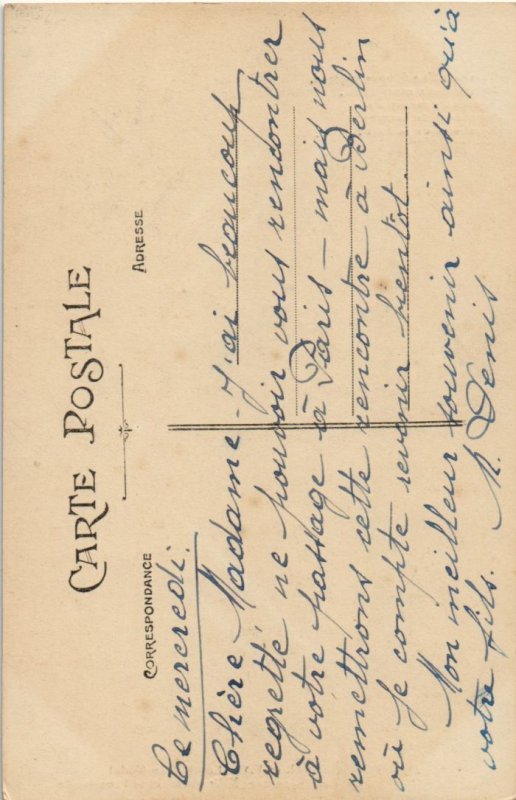 CARTE POSTALE
CORRESPONDANCE
ADRESSE
Ce mercredi.
Chère Madame – J'ai beaucoup
regretté ne pouvoir vous rencontrer
à votre passage à Paris – mais nous
remettrons cette rencontre à Berlin
où je compte revenir bientôt.
Mon meilleur souvenir ainsi qu'à
votre fils. M. Denis